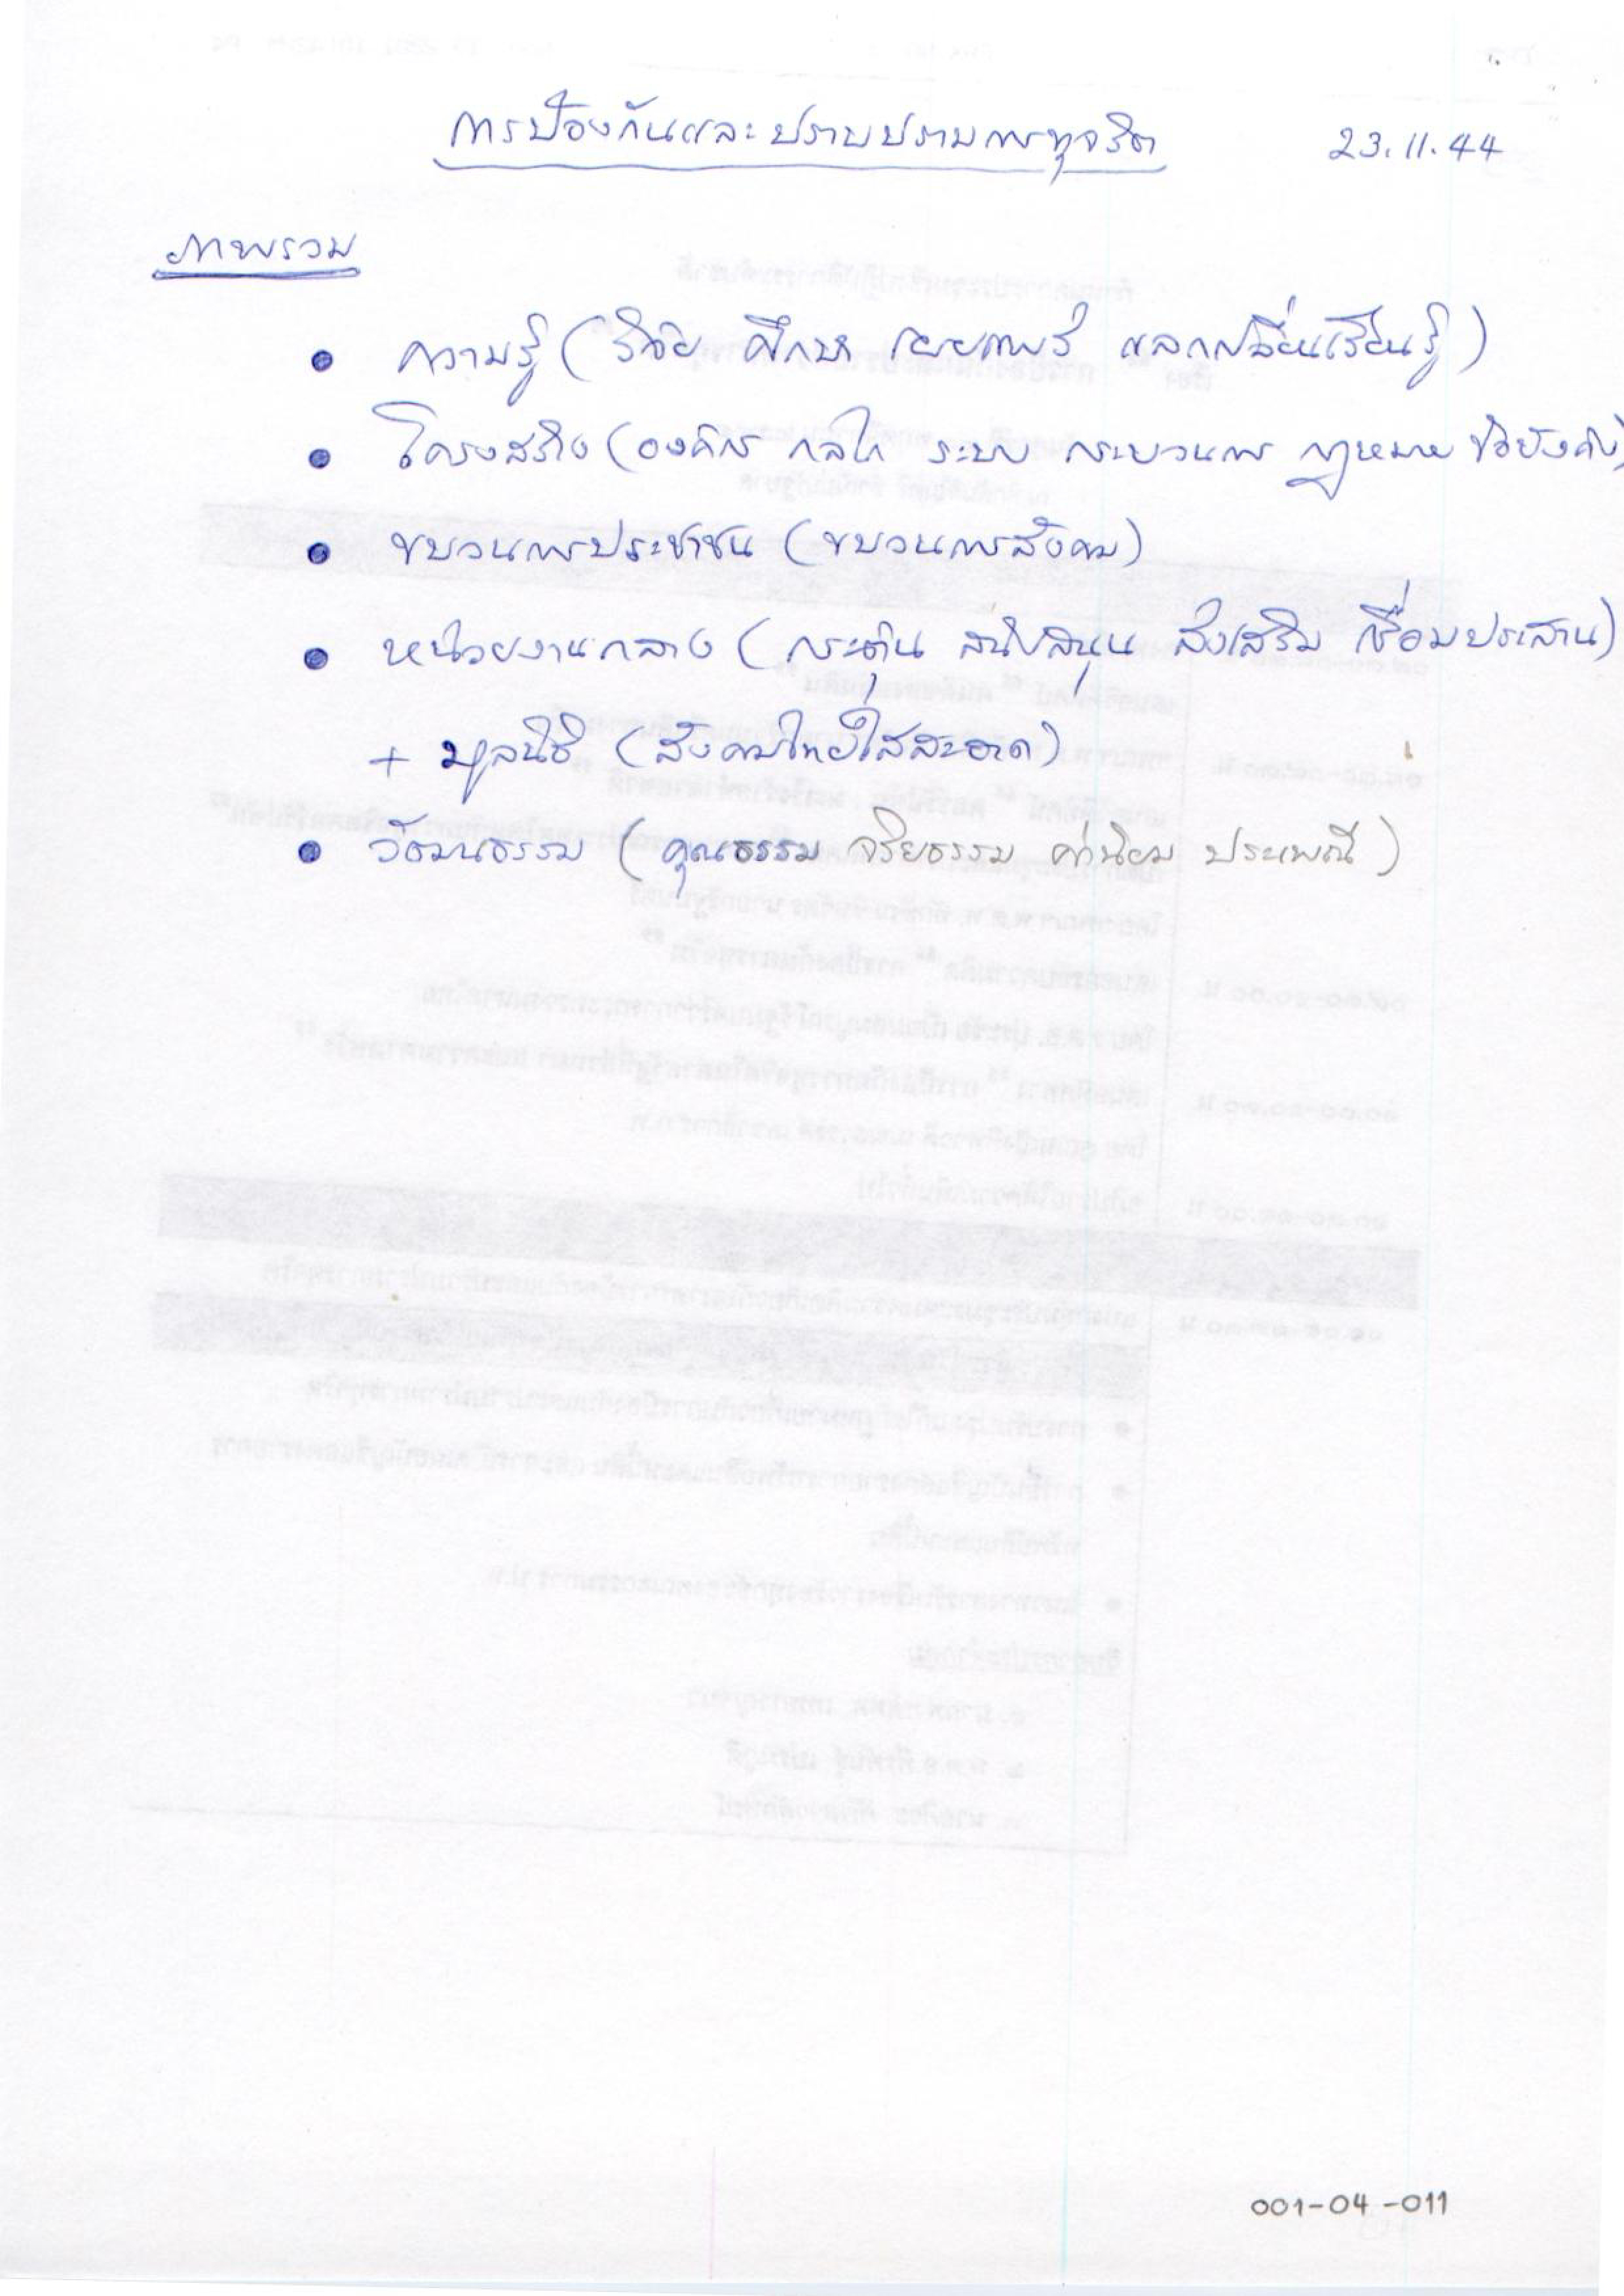 การป้องกันและปราบปรามการทุจริต 23.11.44
ภาพรวม
• ความรู้ (วิจัย ศึกษา เผยแพร่ แลกเปลี่ยนเรียนรู้)
• โครงสร้าง (องค์กร กลไก ระบบ กระบวนการ กฎหมาย ข้อบังคับ)
• ขบวนการประชาชน (ขบวนการสังคม)
• หน่วยงานกลาง (กระตุ้น สนับสนุน ส่งเสริม เชื่อมประสาน)
+ มูลนิธิ (สังคมไทยใสสะอาด)
• วัฒนธรรม (คุณธรรม จริยธรรม ค่านิยม ประเพณี)
001-04-011